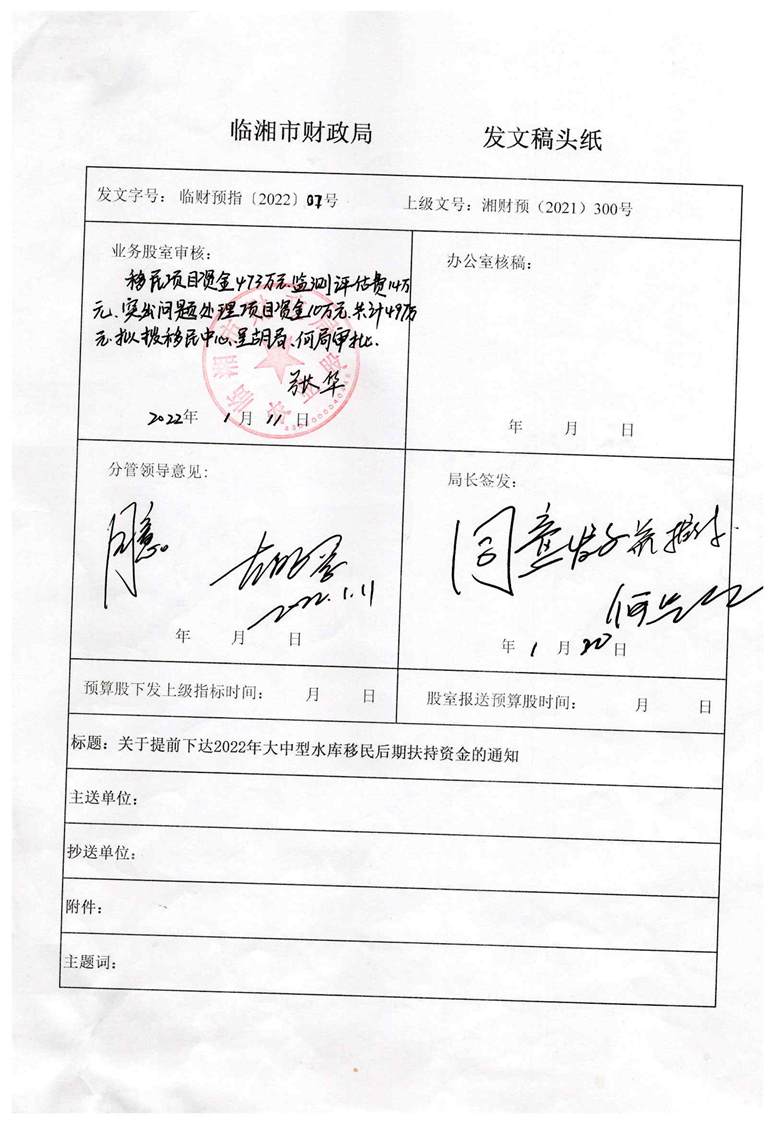 临湘市财政局 发文稿头纸
发文字号：临财预指〔2022〕07号 上级文号：湘财预（2021）300号
业务股室审核：
移民项目资金473万元、监测评估费14万
元、突出问题处理项目资金10万元、共计497万
元.拟拨移民中心,呈胡局、何局审批.
张华
2022年 1月 11日
办公室核稿：
年 月 日
分管领导意见：
同意。
2022.1.11
年 月 日
局长签发：
同意
何
年 1月 20日
预算股下发上级指标时间： 月 日
股室报送预算股时间： 月 日
标题：关于提前下达2022年大中型水库移民后期扶持资金的通知
主送单位：
抄送单位：
附件：
主题词：